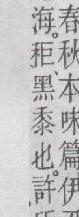 春秋本味篇伊
海。秬黑黍也。許